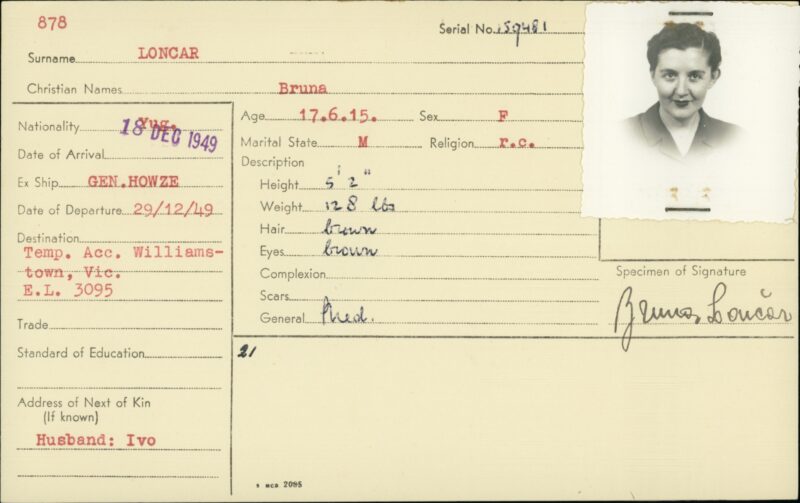 878
Serial No. 159481
Surname LONCAR
Christian Names Bruna
Nationality Yug.
18 DEC 1949
Date of Arrival
Ex Ship GEN.HOWZE
Date of Departure 29/12/49
Destination
Temp. Acc. Williams-
town, Vic.
E.L. 3095
Trade
Standard of Education
Address of Next of Kin
(If known)
Husband: Ivo
Age 17.6.15. Sex F
Marital State M Religion r.c.
Description
Height 5' 2"
Weight 128 lbs
Hair brown
Eyes brown
Complexion
Scars
General Med.
21
Specimen of Signature
Bruna Lončar
5 MCD 2095